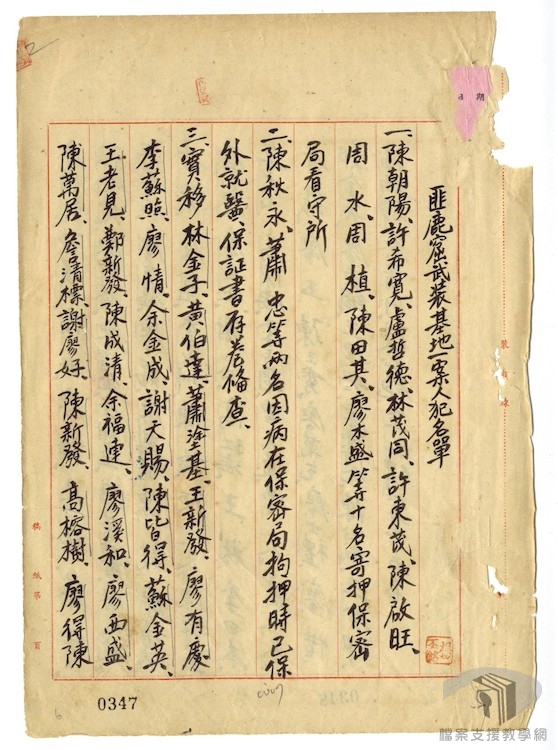 期
匪鹿窟武装基地一案人犯名單
一、陳朝陽、許希寬、盧哲德、林茂同、許東茂、陳啟旺、
周水、周植、陳田其、廖木盛等十名寄押保密
局看守所
二、陳秋永、蕭忠等两名因病在保密局拘押時已保
外就醫、保証書存卷俻查、
三、實移林金子、黃伯達、蕭塗基、王新發、廖有慶
李蘇㷖、廖情、余金成、謝天賜、陳皆得、蘇金英、
王老見、鄭新發、陳成清、余福連、廖溪和、廖西盛、
陳萬居、詹清標、謝廖好、陳新發、高榕樹、廖得陳
裝
稿紙第 頁
0347
檔案支援教學網